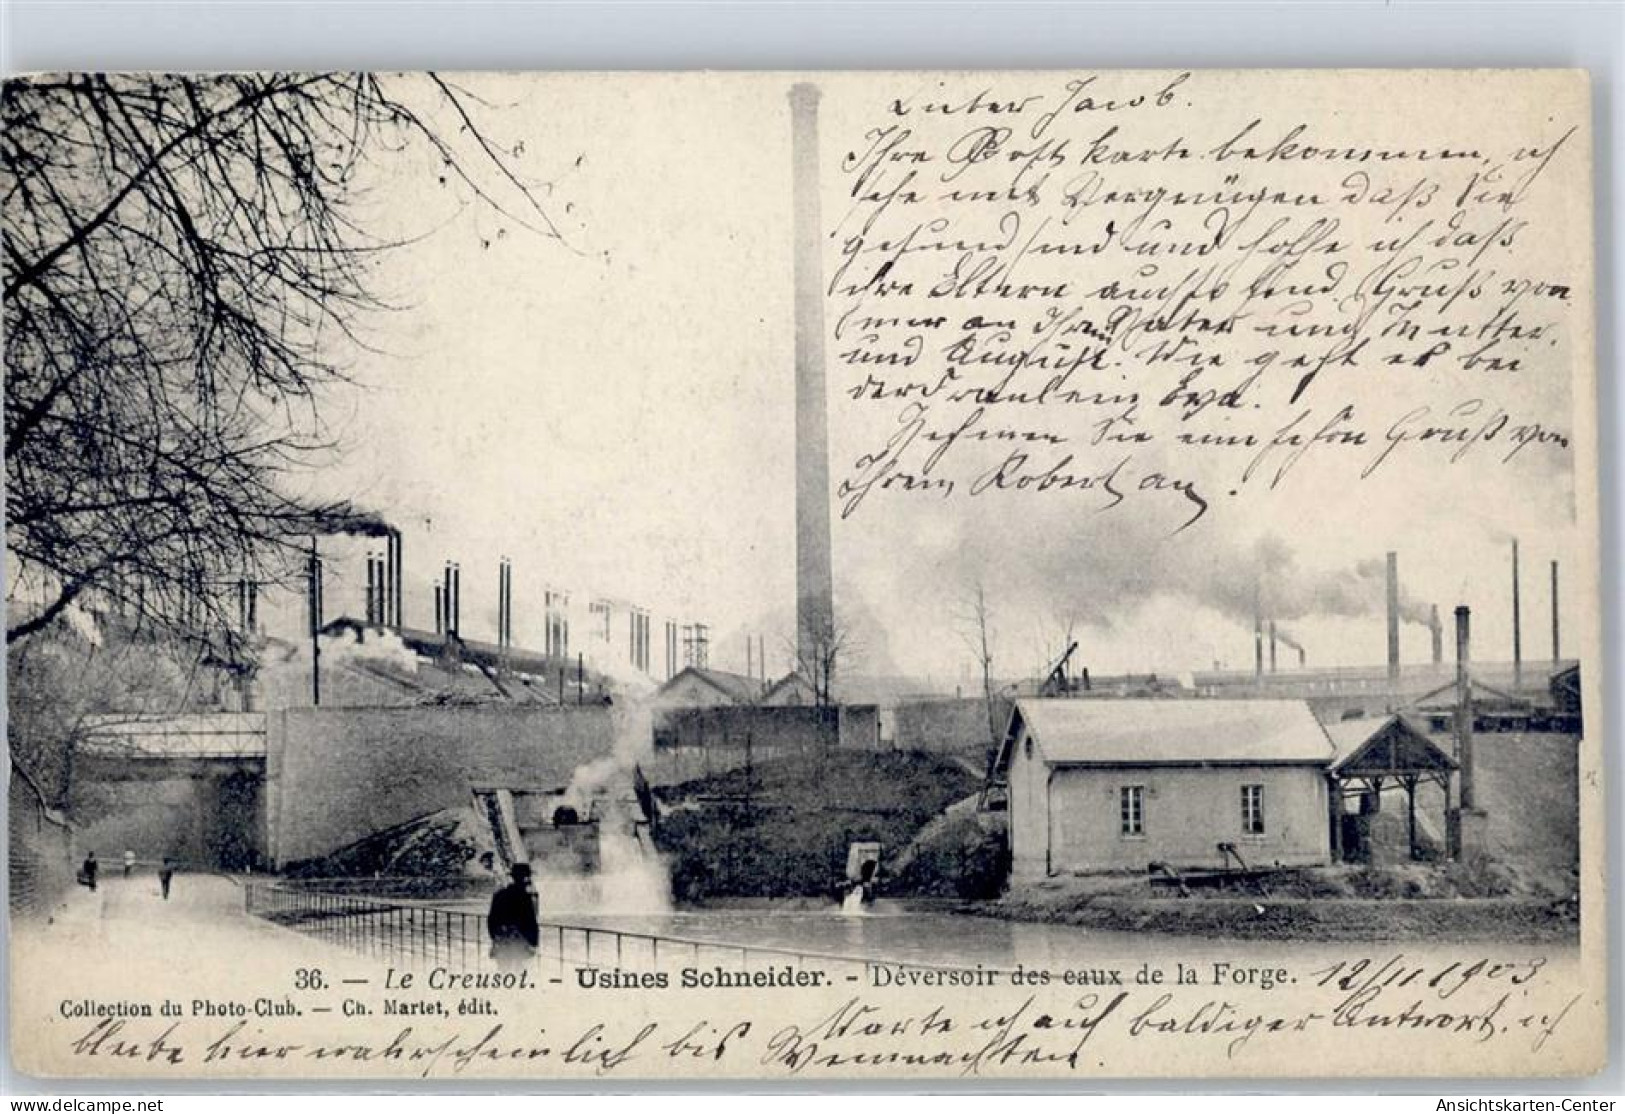 Lieber Jacob.
Ihre Postkarte bekommen, ich
sehe mit Vergnügen daß Sie
gesund sind und hoffe ich daß
ihre Eltern auch so sind. Gruß von
mir an Ihren Vater und Mutter,
und August. Wie geht es bei
der Fraulein Eva.
Nehmen Sie ein schön Gruß von
Ihrem Robert an.
36. — Le Creusot. - Usines Schneider. - Déversoir des eaux de la Forge. 12/11. 1903.
Collection du Photo-Club. — Ch. Martet, édit.
Warte ich auf baldiger Antwort. ich
bleibe hier wahrscheinlich bis Weinachten.
www.delcampe.net
Ansichtskarten-Center